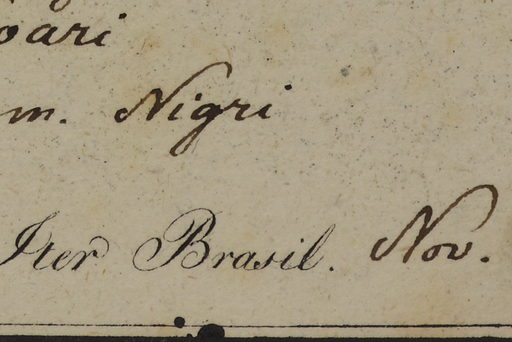 oari
m. Nigri
Iter Brasil. Nov.